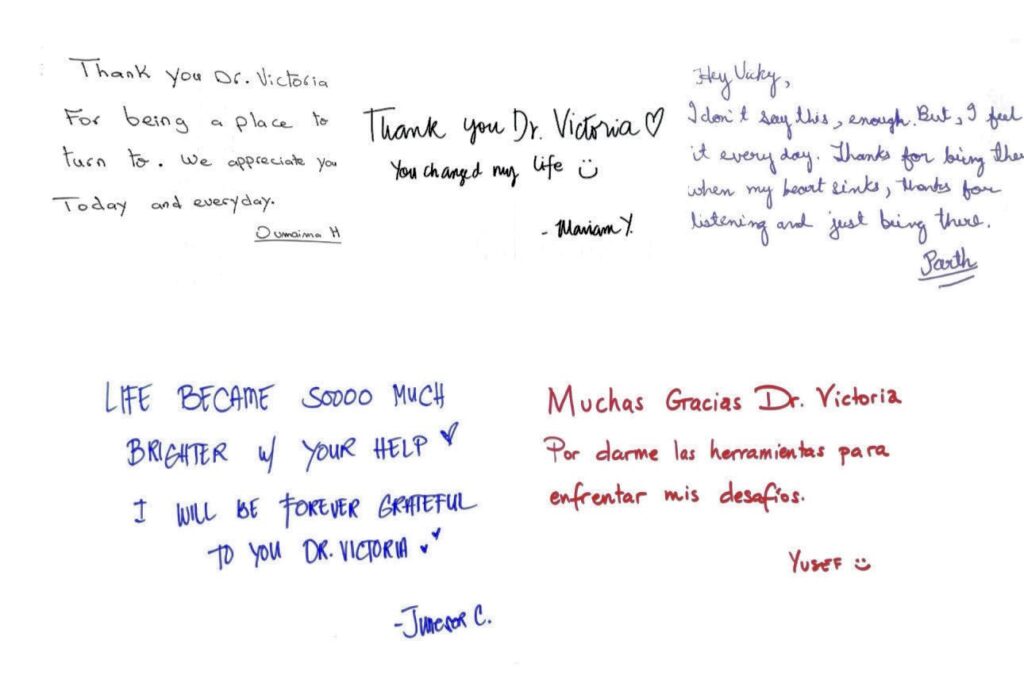 Thank you Dr. Victoria
For being a place to
turn to. We appreciate you
Today and everyday.
Oumaima H
Thank you Dr. Victoria ♡
You changed my life ☺
- Mariam Y.
Hey Vicky,
I don't say this, enough. But, I feel
it every day. Thanks for being ther
when my heart sinks, thanks for
listening and just being there.
Parth
LIFE BECAME SOOOO MUCH
BRIGHTER w/ YOUR HELP ♡
I WILL BE FOREVER GRATEFUL
TO YOU DR. VICTORIA ♡♡
C.
Muchas Gracias Dr. Victoria
Por darme las herramientas para
enfrentar mis desafíos.
YUSEF ☺